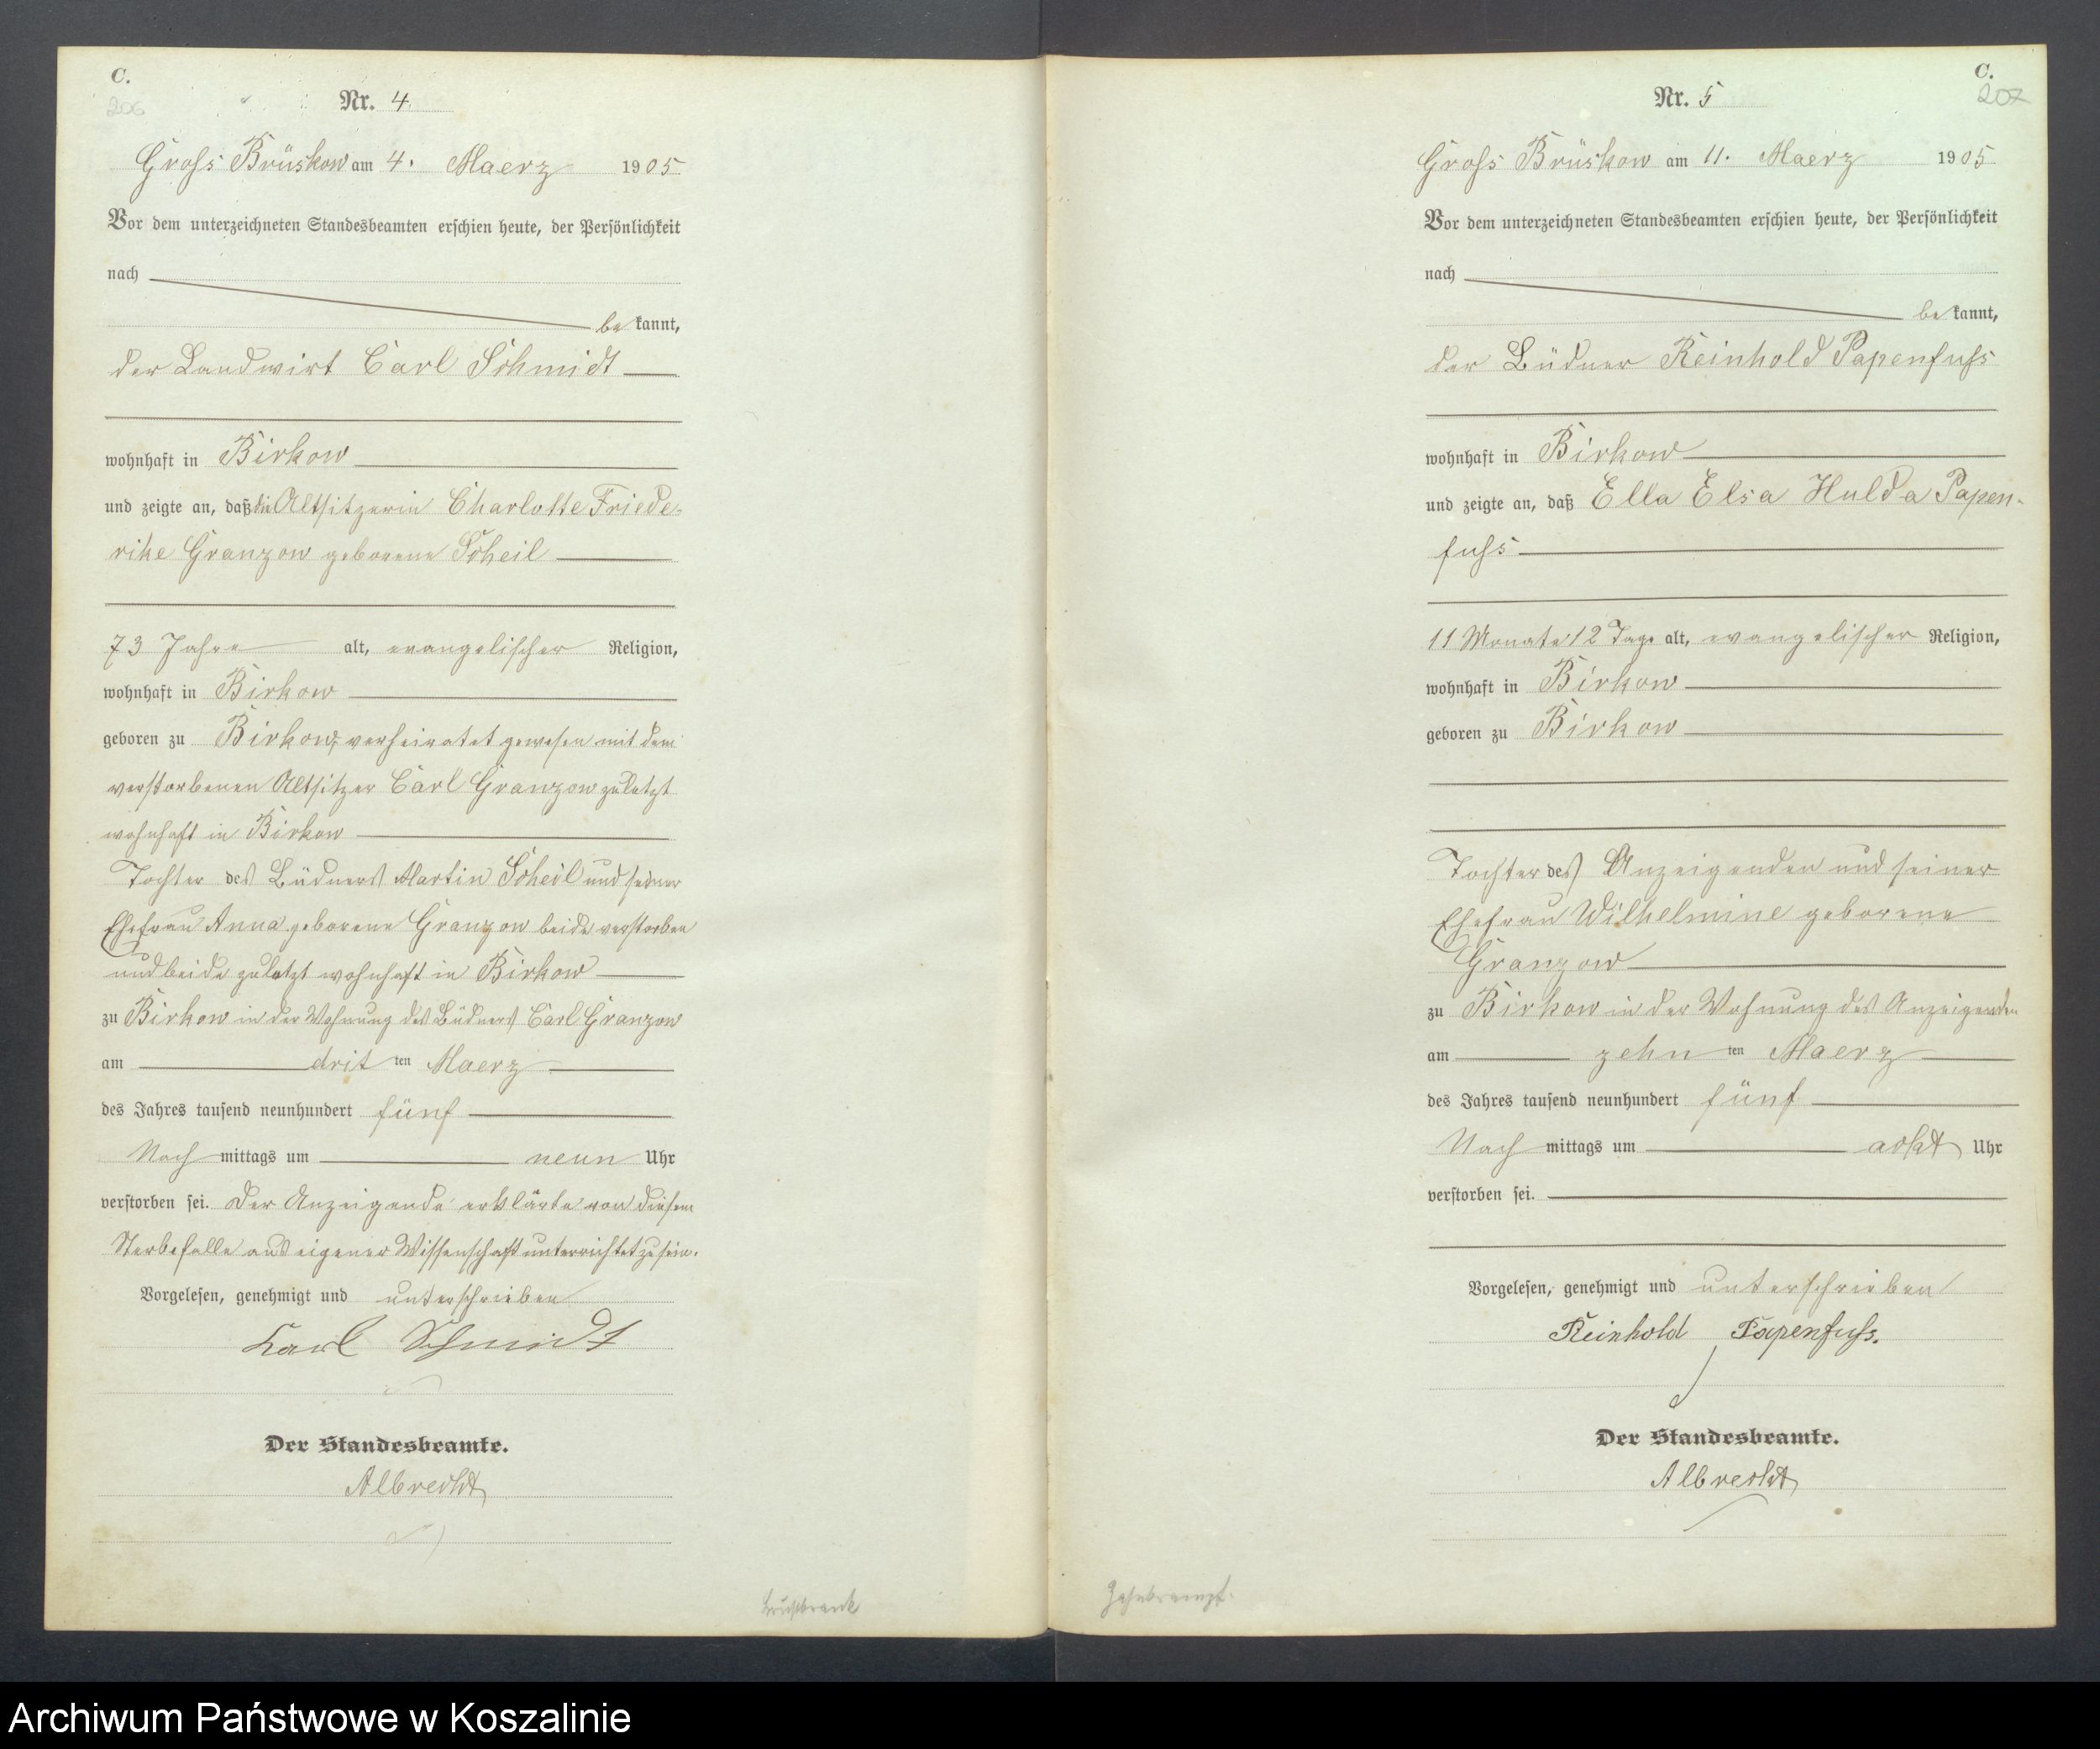 C.
206
Nr. 4.
Groß Brüskow am 4. Maerz 1905
Vor dem unterzeichneten Standesbeamten erschien heute, der Persönlichkeit
nach
bekannt,
der Landwirt Carl Schmidt
wohnhaft in Birkow
und zeigte an, daß die Altsitzerin Charlotte Friede-
rike Granzow geborene Scheil
73 Jahre alt, evangelischer Religion,
wohnhaft in Birkow
geboren zu Birkow, verheiratet gewesen mit dem
verstorbenen Altsitzer Carl Granzow zuletzt
wohnhaft in Birkow
Tochter des Büdners Martin Scheil und seiner
Ehefrau Anna geborene Granzow beide verstorben
und beide zuletzt wohnhaft in Birkow
zu Birkow in der Wohnung des Büdners Carl Granzow
am dritten Maerz
des Jahres tausend neunhundert fünf
Nachmittags um neun Uhr
verstorben sei. Der Anzeigende erklärte von diesem
Sterbefalle aus eigener Wissenschaft unterrichtet zu sein.
Vorgelesen, genehmigt und unterschrieben
Karl Schmidt
Der Standesbeamte.
Albrecht
C.
207
Nr. 5
Groß Brüskow am 11. Maerz 1905
Vor dem unterzeichneten Standesbeamten erschien heute, der Persönlichkeit
nach
bekannt,
der Büdner Reinhold Papenfuß
wohnhaft in Birkow
und zeigte an, daß Ella Elsa Hulda Papen-
fuß
11 Monate 12 Tage alt, evangelischer Religion,
wohnhaft in Birkow
geboren zu Birkow
Tochter des Anzeigenden und seiner
Ehefrau Wilhelmine geborene
Granzow
zu Birkow in der Wohnung des Anzeigenden
am zehnten Maerz
des Jahres tausend neunhundert fünf
Nachmittags um acht Uhr
verstorben sei.
Vorgelesen, genehmigt und unterschrieben
Reinhold Papenfuß.
Der Standesbeamte.
Albrecht
Zahnkrampf.
Archiwum Państwowe w Koszalinie